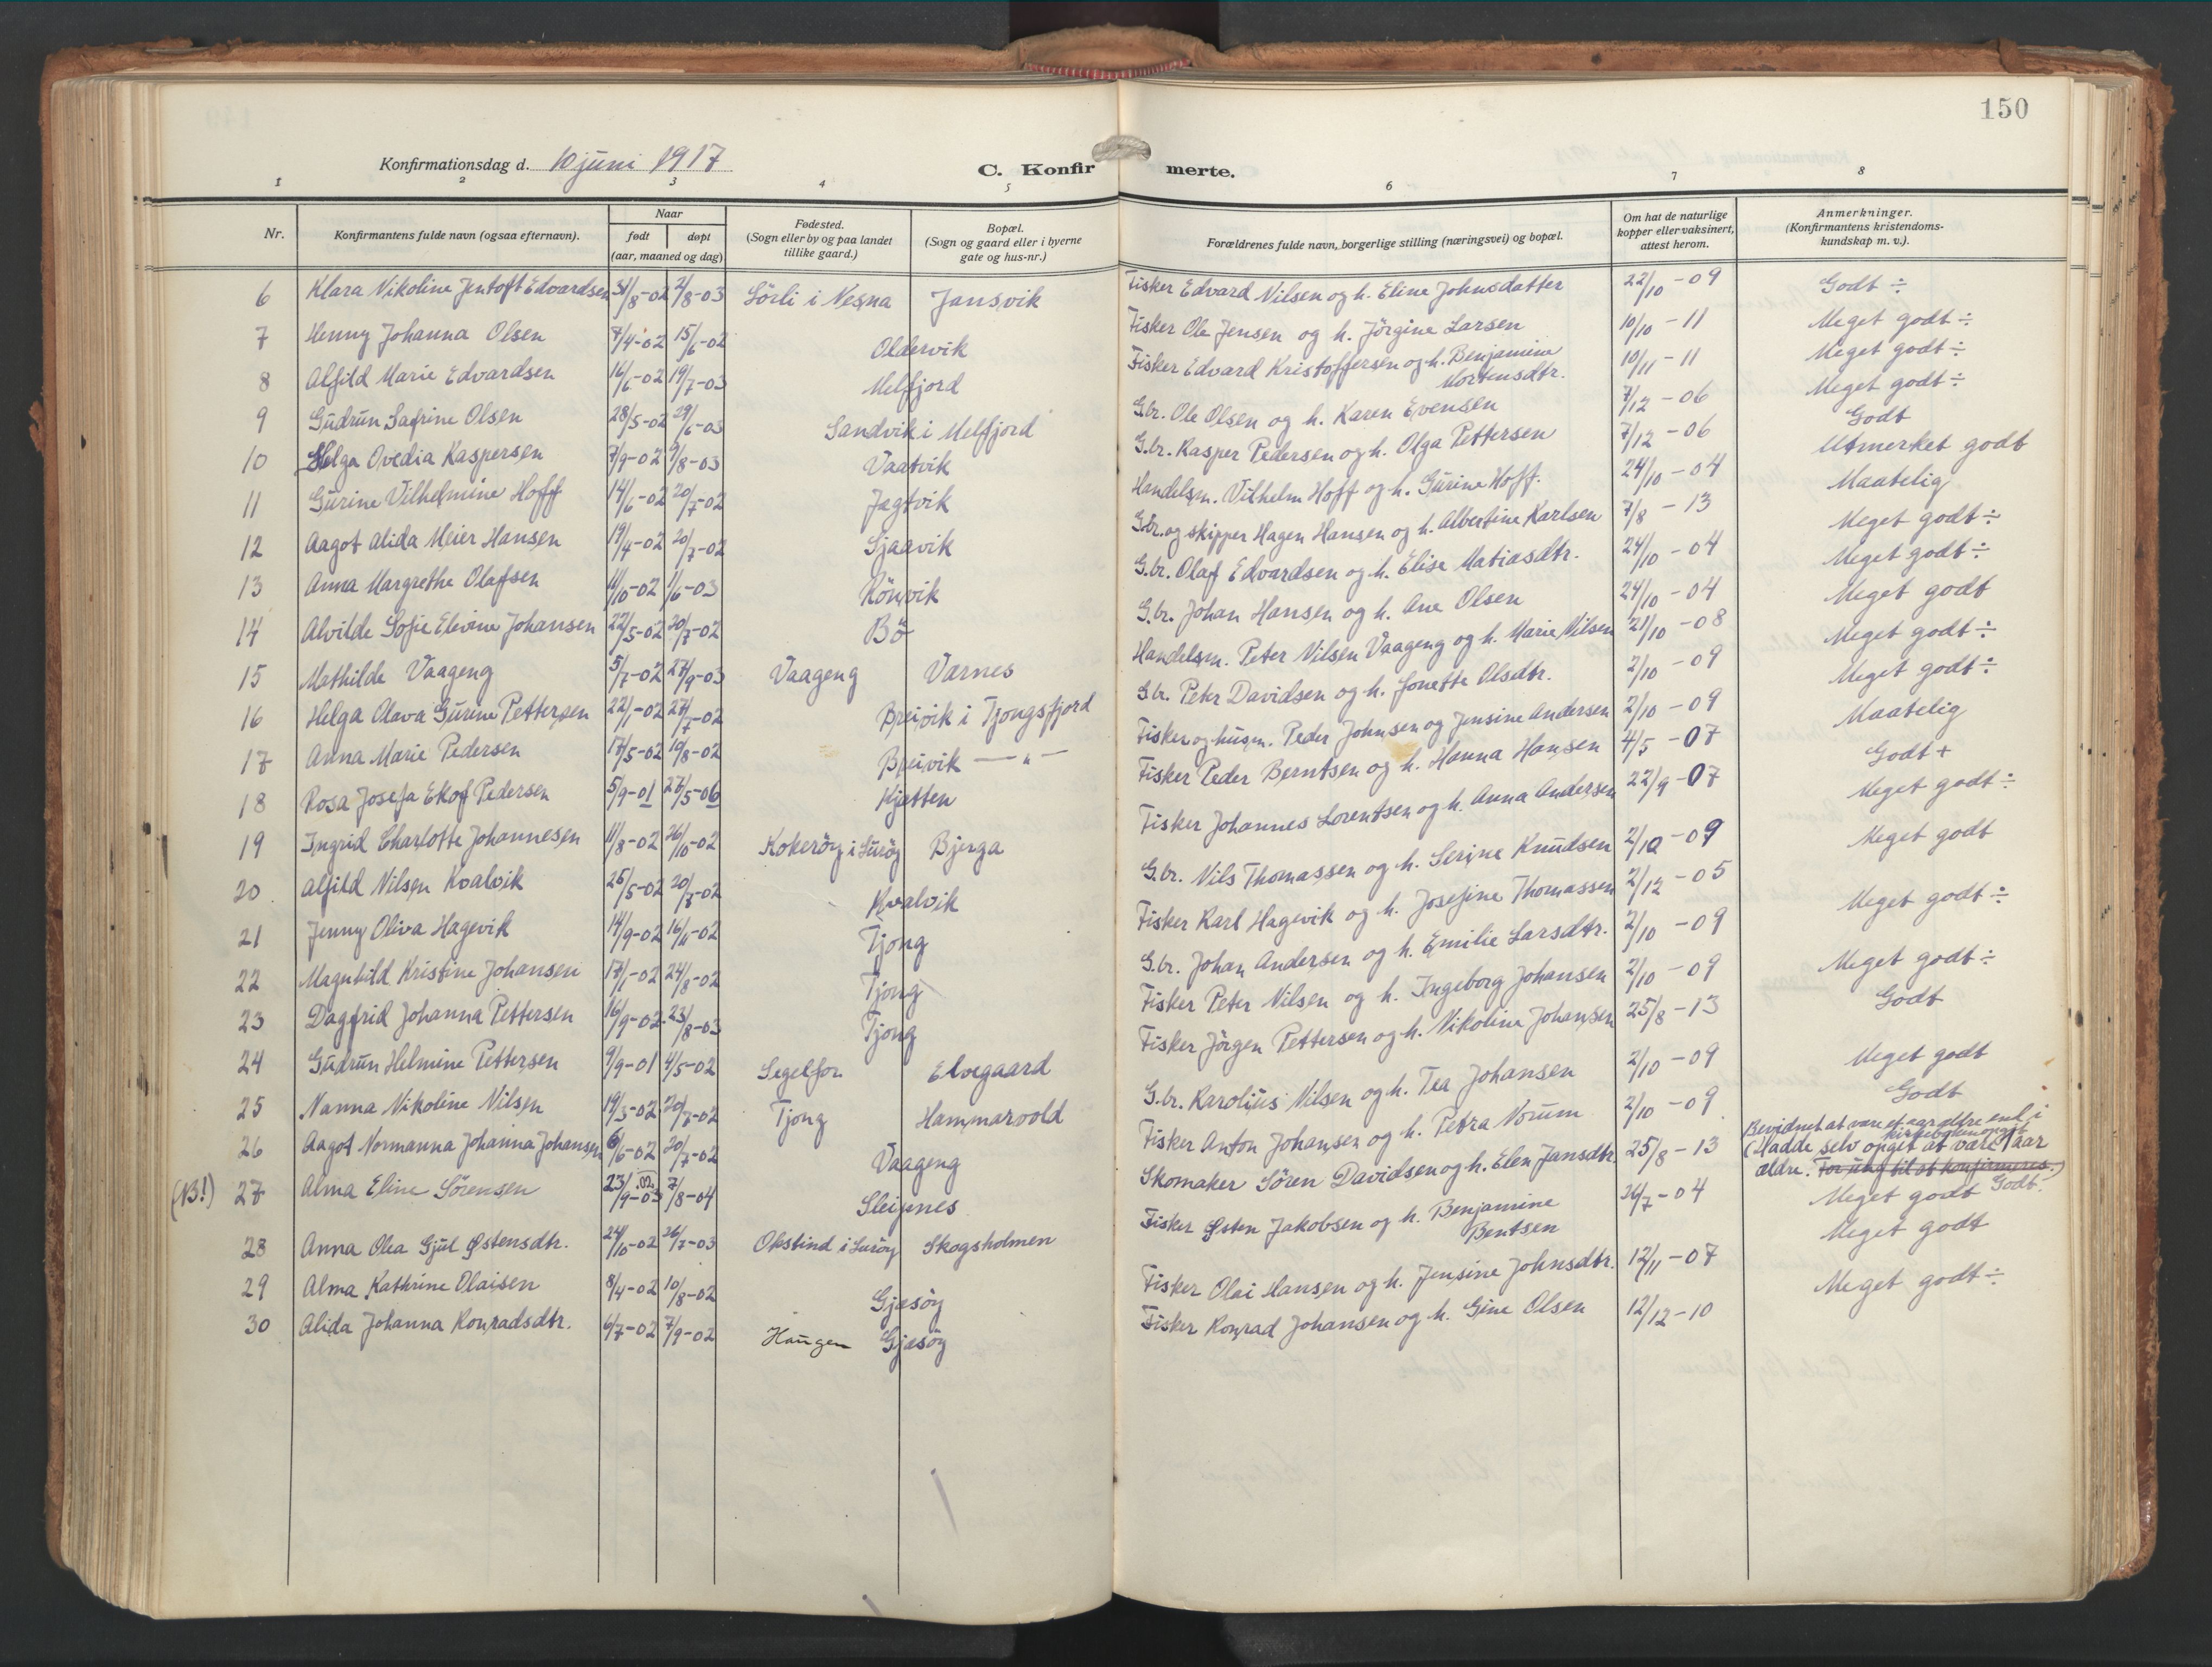 150
Konfirmationsdag d. 10 juni 1917
C. Konfirmerte.
1 2 3 4 5 6 7 8
Nr. Konfirmantens fulde navn (ogsaa efternavn). Naar født døpt (aar, maaned og dag) Fødested. (Sogn eller by og paa landet tillike gaard.) Bopæl. (Sogn og gaard eller i byerne gate og hus-nr.) Forældrenes fulde navn, borgerlige stilling (næringsvei) og bopæl. Om hat de naturlige kopper eller vaksinert, attest herom. Anmerkninger. (Konfirmantens kristendoms-kundskap m. v.).
6 Klara Nikoline Jentoft Edvardsen 31/8-02 2/8-03 Sörli i Nesna Jansvik Fisker Edvard Nilsen og h. Eline Johnsdatter 22/10-09 Godt ÷
7 Henny Johanna Olsen 7/4-02 15/6-02 Oldervik Fisker Ole Jensen og h. Jörgine Larsen 10/10-11 Meget godt ÷
8 Alfild Marie Edvardsen 16/6-02 19/7-03 Melfjord Fisker Edvard Kristoffersen og h. Benjamine Mortensdtr. 10/11-11 Meget godt ÷
9 Gudrun Safrine Olsen 28/5-02 29/6-03 Sandvik i Melfjord Gbr. Ole Olsen og h. Karen Evensen 7/12-06 Meget godt ÷
10 Helga Ovedia Kaspersen 7/9-02 9/8-03 Vaatvik G.br. Kasper Pedersen og h. Olga Pettersen 7/12-06 Godt
11 Gurine Vilhelmine Hoff 14/6-02 20/7-02 Jegtvik Handelsm. Vilhelm Hoff og h. Gurine Hoff. 24/10-04 Utmerket godt
12 Aagot Alida Meier Hansen 19/4-02 20/7-02 Sjaavik G.br. og skipper Hagen Hansen og h. Albertine Karlsen 7/8-13 Maatelig
13 Anna Margrethe Olafsen 11/10-02 1/6-03 Rönvik G.br. Olaf Edvardsen og h. Elise Matiasdtr. 24/10-04 Meget godt ÷
14 Alvilde Sofie Elevine Johansen 22/5-02 20/7-02 Bö G.br. Johan Hansen og h. Ane Olsen 24/10-04 Meget godt ÷
15 Mathilde Vaageng 5/7-02 27/9-03 Vaageng Værnes Handelsm. Peter Nilsen Vaageng og h. Marie Nilsen 21/10-08 Meget godt
16 Helga Olava Gurine Pettersen 22/1-02 27/7-02 Breivik i Tjongsfjord G.br. Peter Davidsen og h. Jonette Olsdtr. 2/10-09 Meget godt ÷
17 Anna Marie Pedersen 17/5-02 10/8-02 Breivik —"— Fisker og husm. Peder Johnsen og Jensine Andersen 2/10-09 Meget godt ÷
18 Rosa Josefa Ekof Pedersen 5/9-01 27/5-06 Kjætten Fisker Peder Berntsen og h. Hanna Hansen 4/5-07 Maatelig
19 Ingrid Charlotte Johannesen 11/8-02 26/10-02 Kokeröy i Luröy Bjerga Fisker Johannes Lorentsen og h. Anna Andersen 22/9-07 Godt +
20 Alfild Nilsen Kvalvik 25/5-02 20/7-02 Kvalvik G.br. Nils Thomassen og h. Serine Knudsen 2/10-09 Meget godt ÷
21 Jenny Oliva Hagevik 14/9-02 16/11-02 Tjong Fisker Karl Hagevik og h. Josefine Thomassen 2/12-05 Meget godt
22 Magnhild Kristine Johansen 17/1-02 24/8-02 Tjong G.br. Johan Andersen og h. Emilie Larsdtr. 2/10-09 Meget godt ÷
23 Dagfrid Johanna Pettersen 16/9-02 23/8-03 Tjong Fisker Peter Nilsen og h. Ingeborg Johansen 2/10-09 Meget godt ÷
24 Gudrun Helmine Pettersen 9/9-01 4/5-02 Segelfor Elvegaard Fisker Jörgen Pettersen og h. Nikoline Johansen 25/8-13 Godt
25 Nanna Nikoline Nilsen 19/3-02 20/7-02 Tjong Hammarvold G.br. Karolius Nilsen og h. Tea Johansen 2/10-09 Meget godt
26 Aagot Normanna Johanna Johansen 6/6-02 20/7-02 Vaageng Fisker Anton Johansen og h. Petra Norum 2/10-09 Godt
(NB!) 27 Alma Eline Sörensen 23/9-03 02 7/8-04 Sleipnes Skomaker Sören Davidsen og h. Elen Jansdtr. 25/8-13 Bevidnet at være et aar ældre end i kirkeboken opgit (Hadde selv opgit at være 1 aar ældre. For ung til at konfirmeres.) Godt.
28 Anna Olea Gjul Østensdtr. 24/10-02 26/7-03 Okstind i Luröy Skogsholmen Fisker Østen Jakobsen og h. Benjamine Bentsen 26/7-04 Meget godt
29 Alma Kathrine Olaisen 8/4-02 10/8-02 Gjæsöy Fisker Olai Hansen og h. Jensine Johnsdtr. 12/11-07 Meget godt
30 Alida Johanna Konradsdtr. 6/7-02 7/9-02 Haugen Gjæsöy Fisker Konrad Johansen og h. Gine Olsen 12/12-10 Meget godt ÷